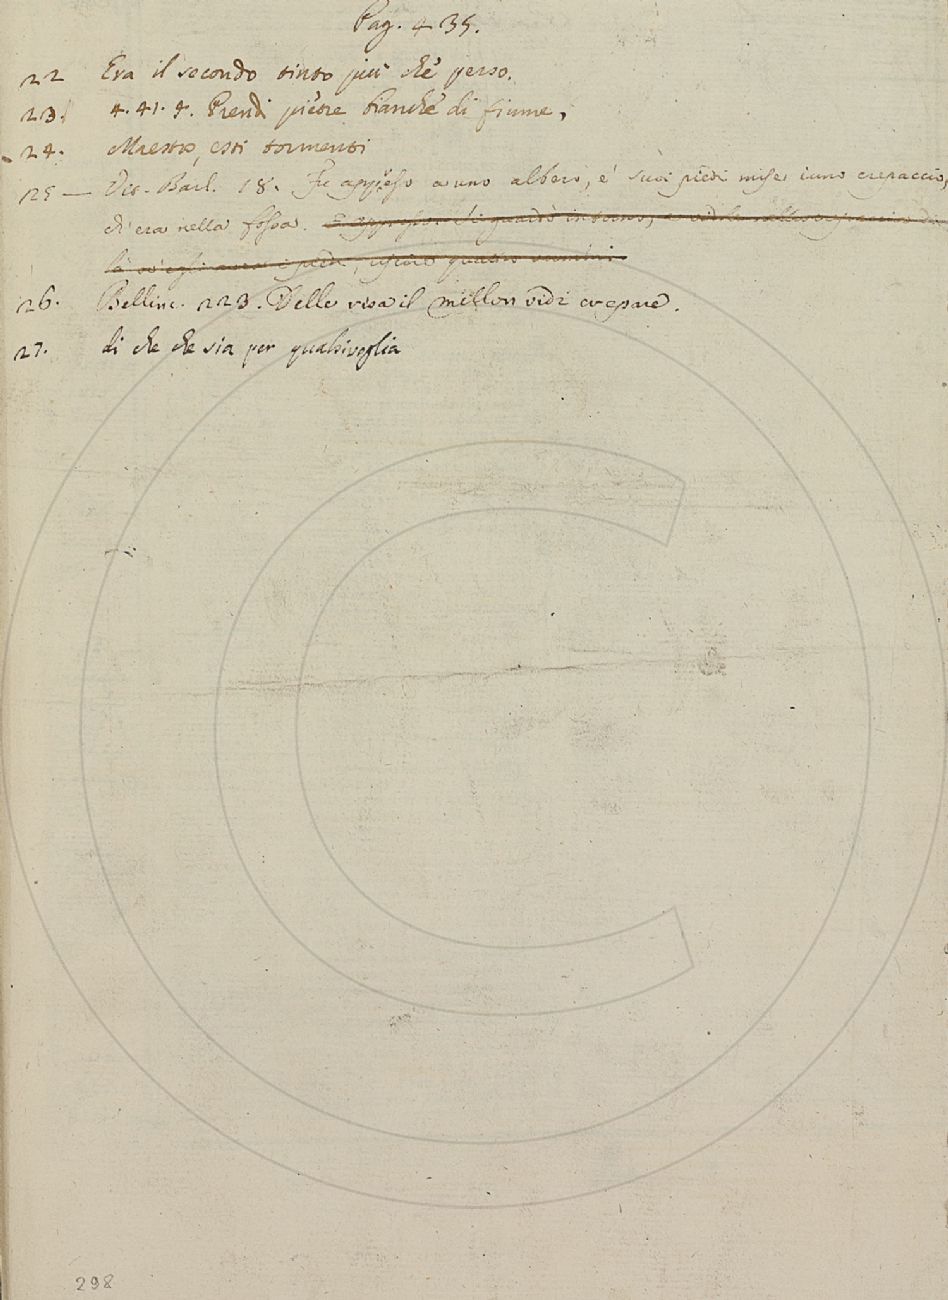 Pag. 435.
22 Era il secondo tinto più che perso.
23. 4. 41. 4. Prendi pietre bianche di fiume,
24. Maestro, esti tormenti
25 — Vit. Barl. 18. Fu appreso a uno albero, e' suoi piedi mise in uno crepaccio,
ch'era nella fossa.
26. Bellinc. 223. Delle risa il millon vidi crepare.
27. di che che sia per qualsivoglia
298